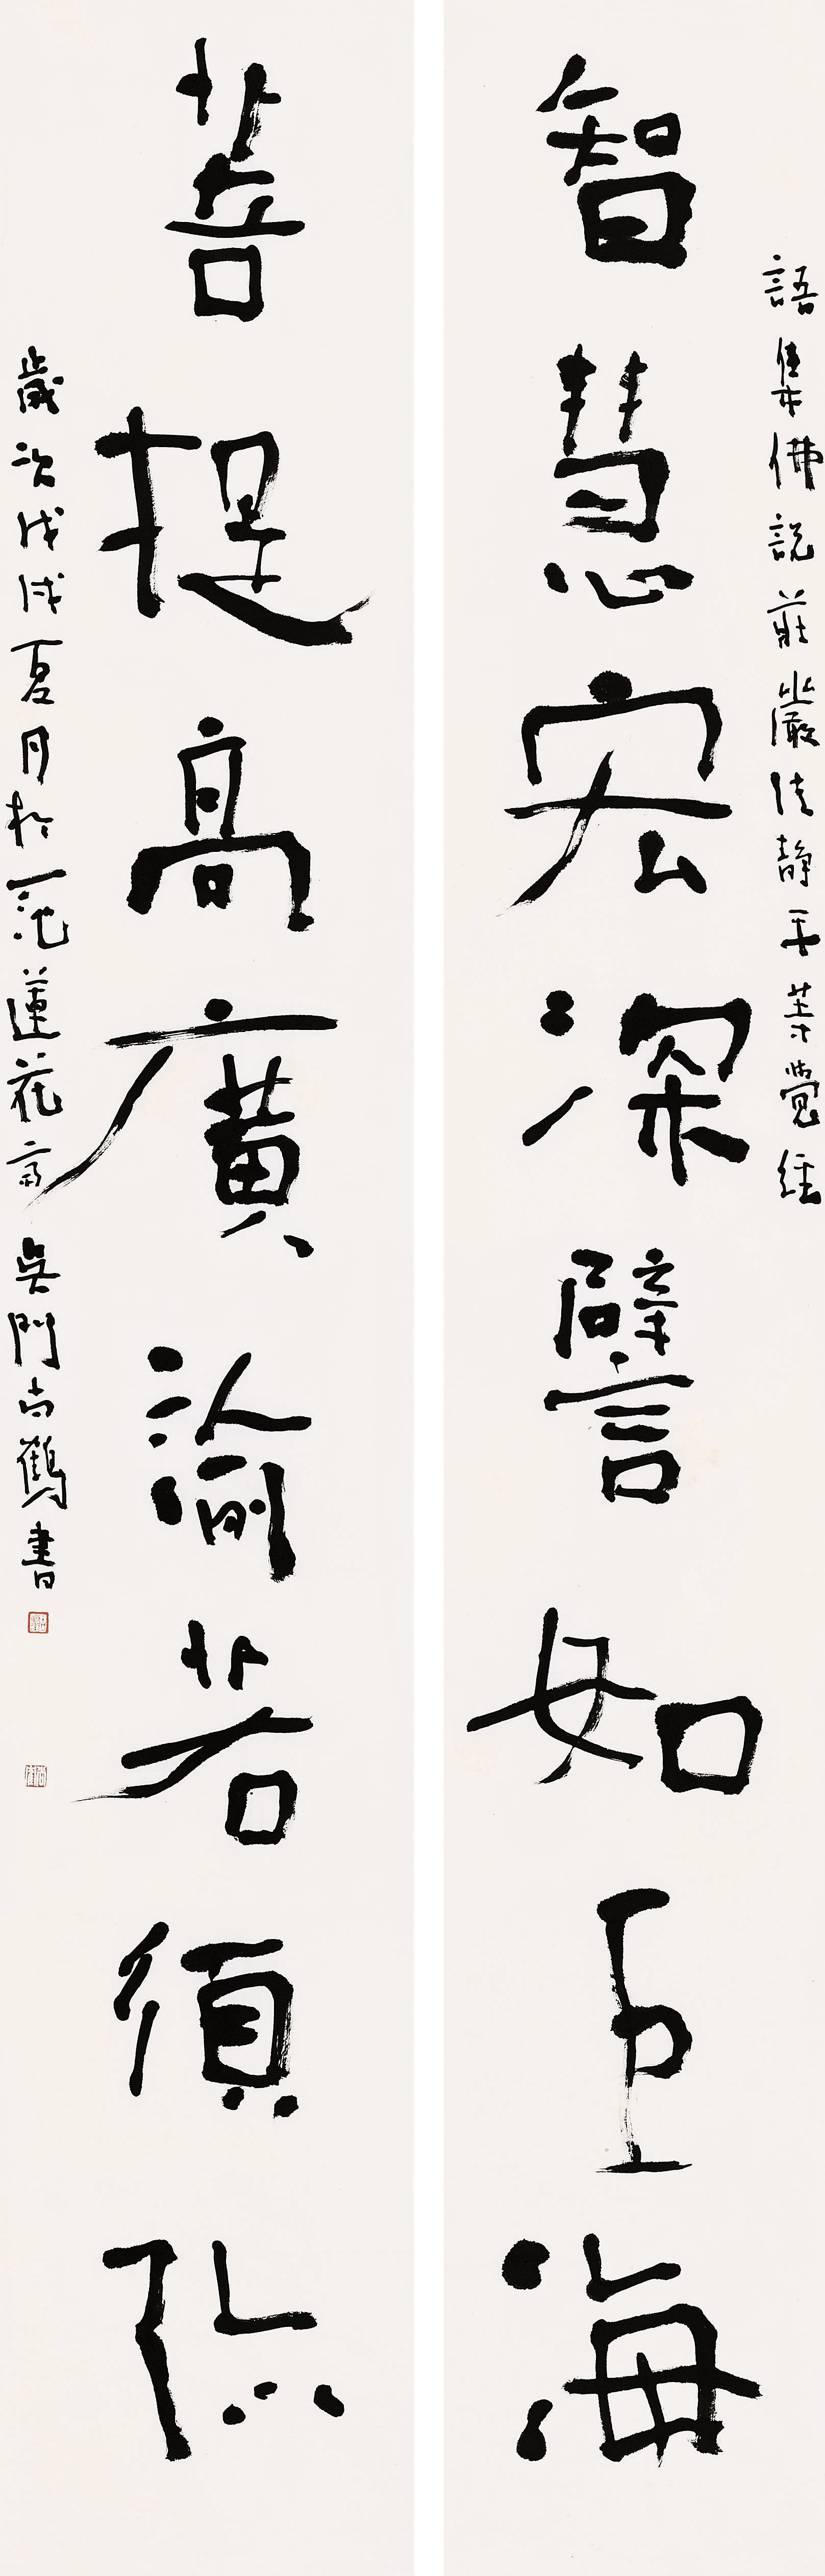 語集佛說莊嚴清静平等覺經
智慧宏深譬如巨海
菩提高廣喻若須弥
歲次戊戌夏月於一池蓮花齋吳門尚鶴書